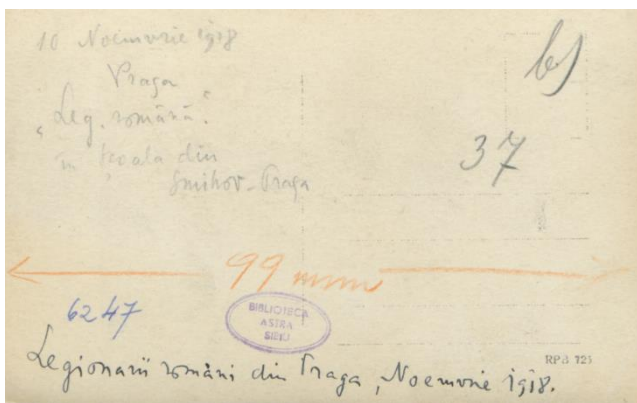 10 Noemvrie 1918
Praga
„Leg. română."
în școala din
Smihov-Praga
b)
37
99 mm
6247
BIBLIOTECA
ASTRA
SIBIU
RPB 121
Legionarii români din Praga, Noemvrie 1918.